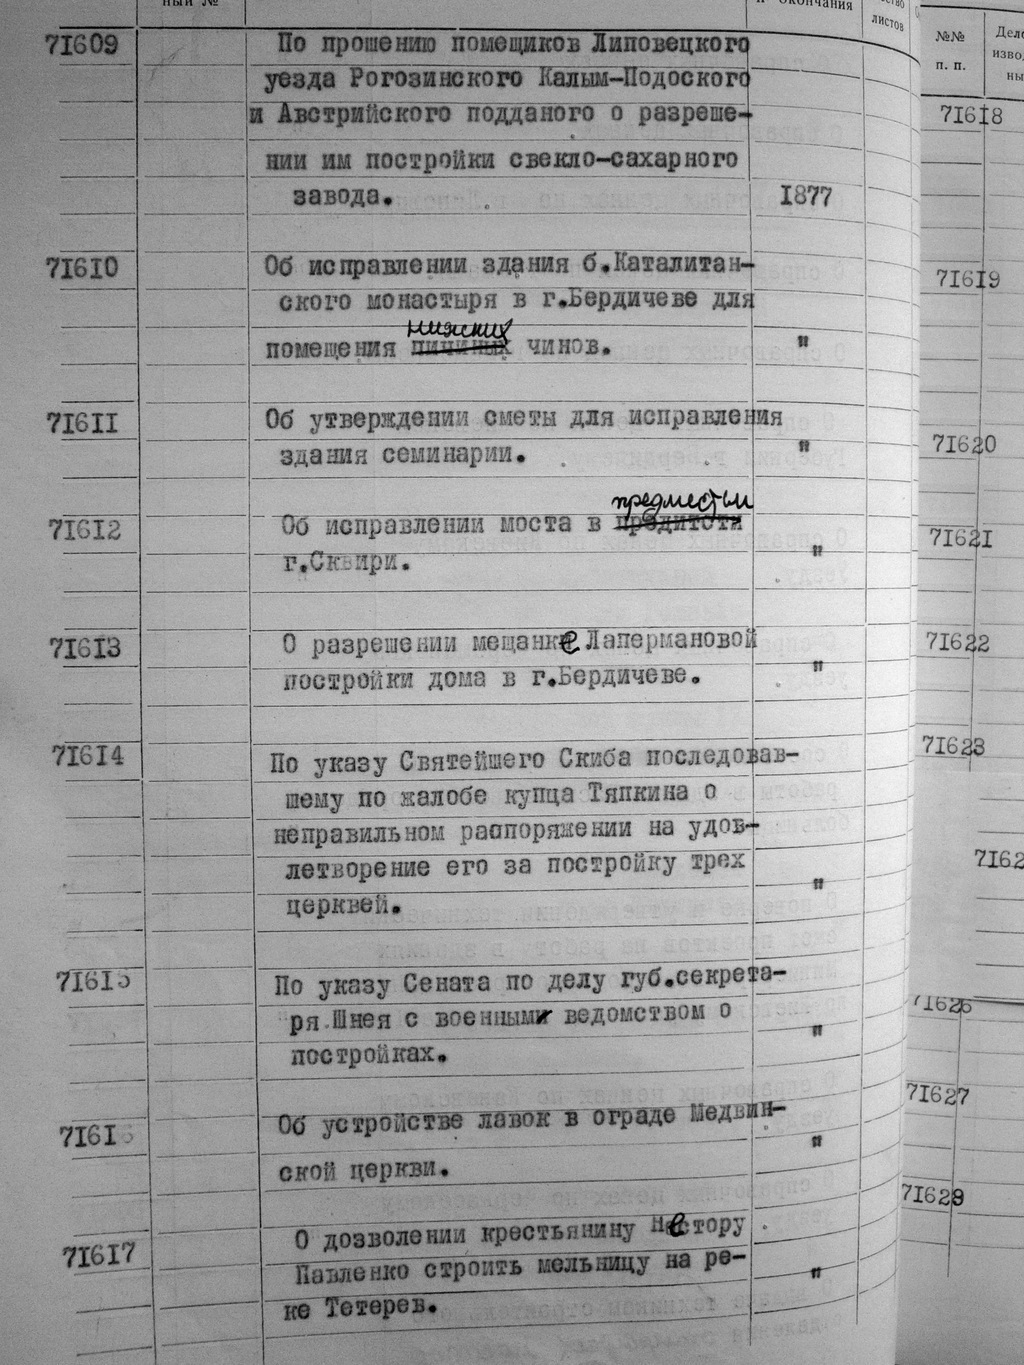 ный №
и окончания
ство
листов
71609
По прошению помещиков Липовецкого
уезда Рогозинского Калым-Подоского
и Австрийского подданого о разреше-
нии им постройки свекло-сахарного
завода.
1877
71610
Об исправлении здания б.Каталитан-
ского монастыря в г.Бердичеве для
нижних
помещения чинов.
"
71611
Об утверждении сметы для исправления
здания семинарии.
"
71612
предместьи
Об исправлении моста в предитстя
г.Сквири.
"
71613
О разрешении мещанке Лапермановой
постройки дома в г.Бердичеве.
"
71614
По указу Святейшего Скиба последовав-
шему по жалобе купца Тяпкина о
неправильном распоряжении на удов-
летворение его за постройку трех
церквей.
"
71615
По указу Сената по делу губ.секрета-
ря Шнея с военным ведомством о
постройках.
"
71616
Об устройстве лавок в ограде Медвин-
ской церкви.
"
71617
О дозволении крестьянину Нестору
Павленко строить мельницу на ре-
ке Тетерев.
"
№№
п. п.
Дело
извод
ны
71618
71619
71620
71621
71622
71623
7162
71626
71627
71629